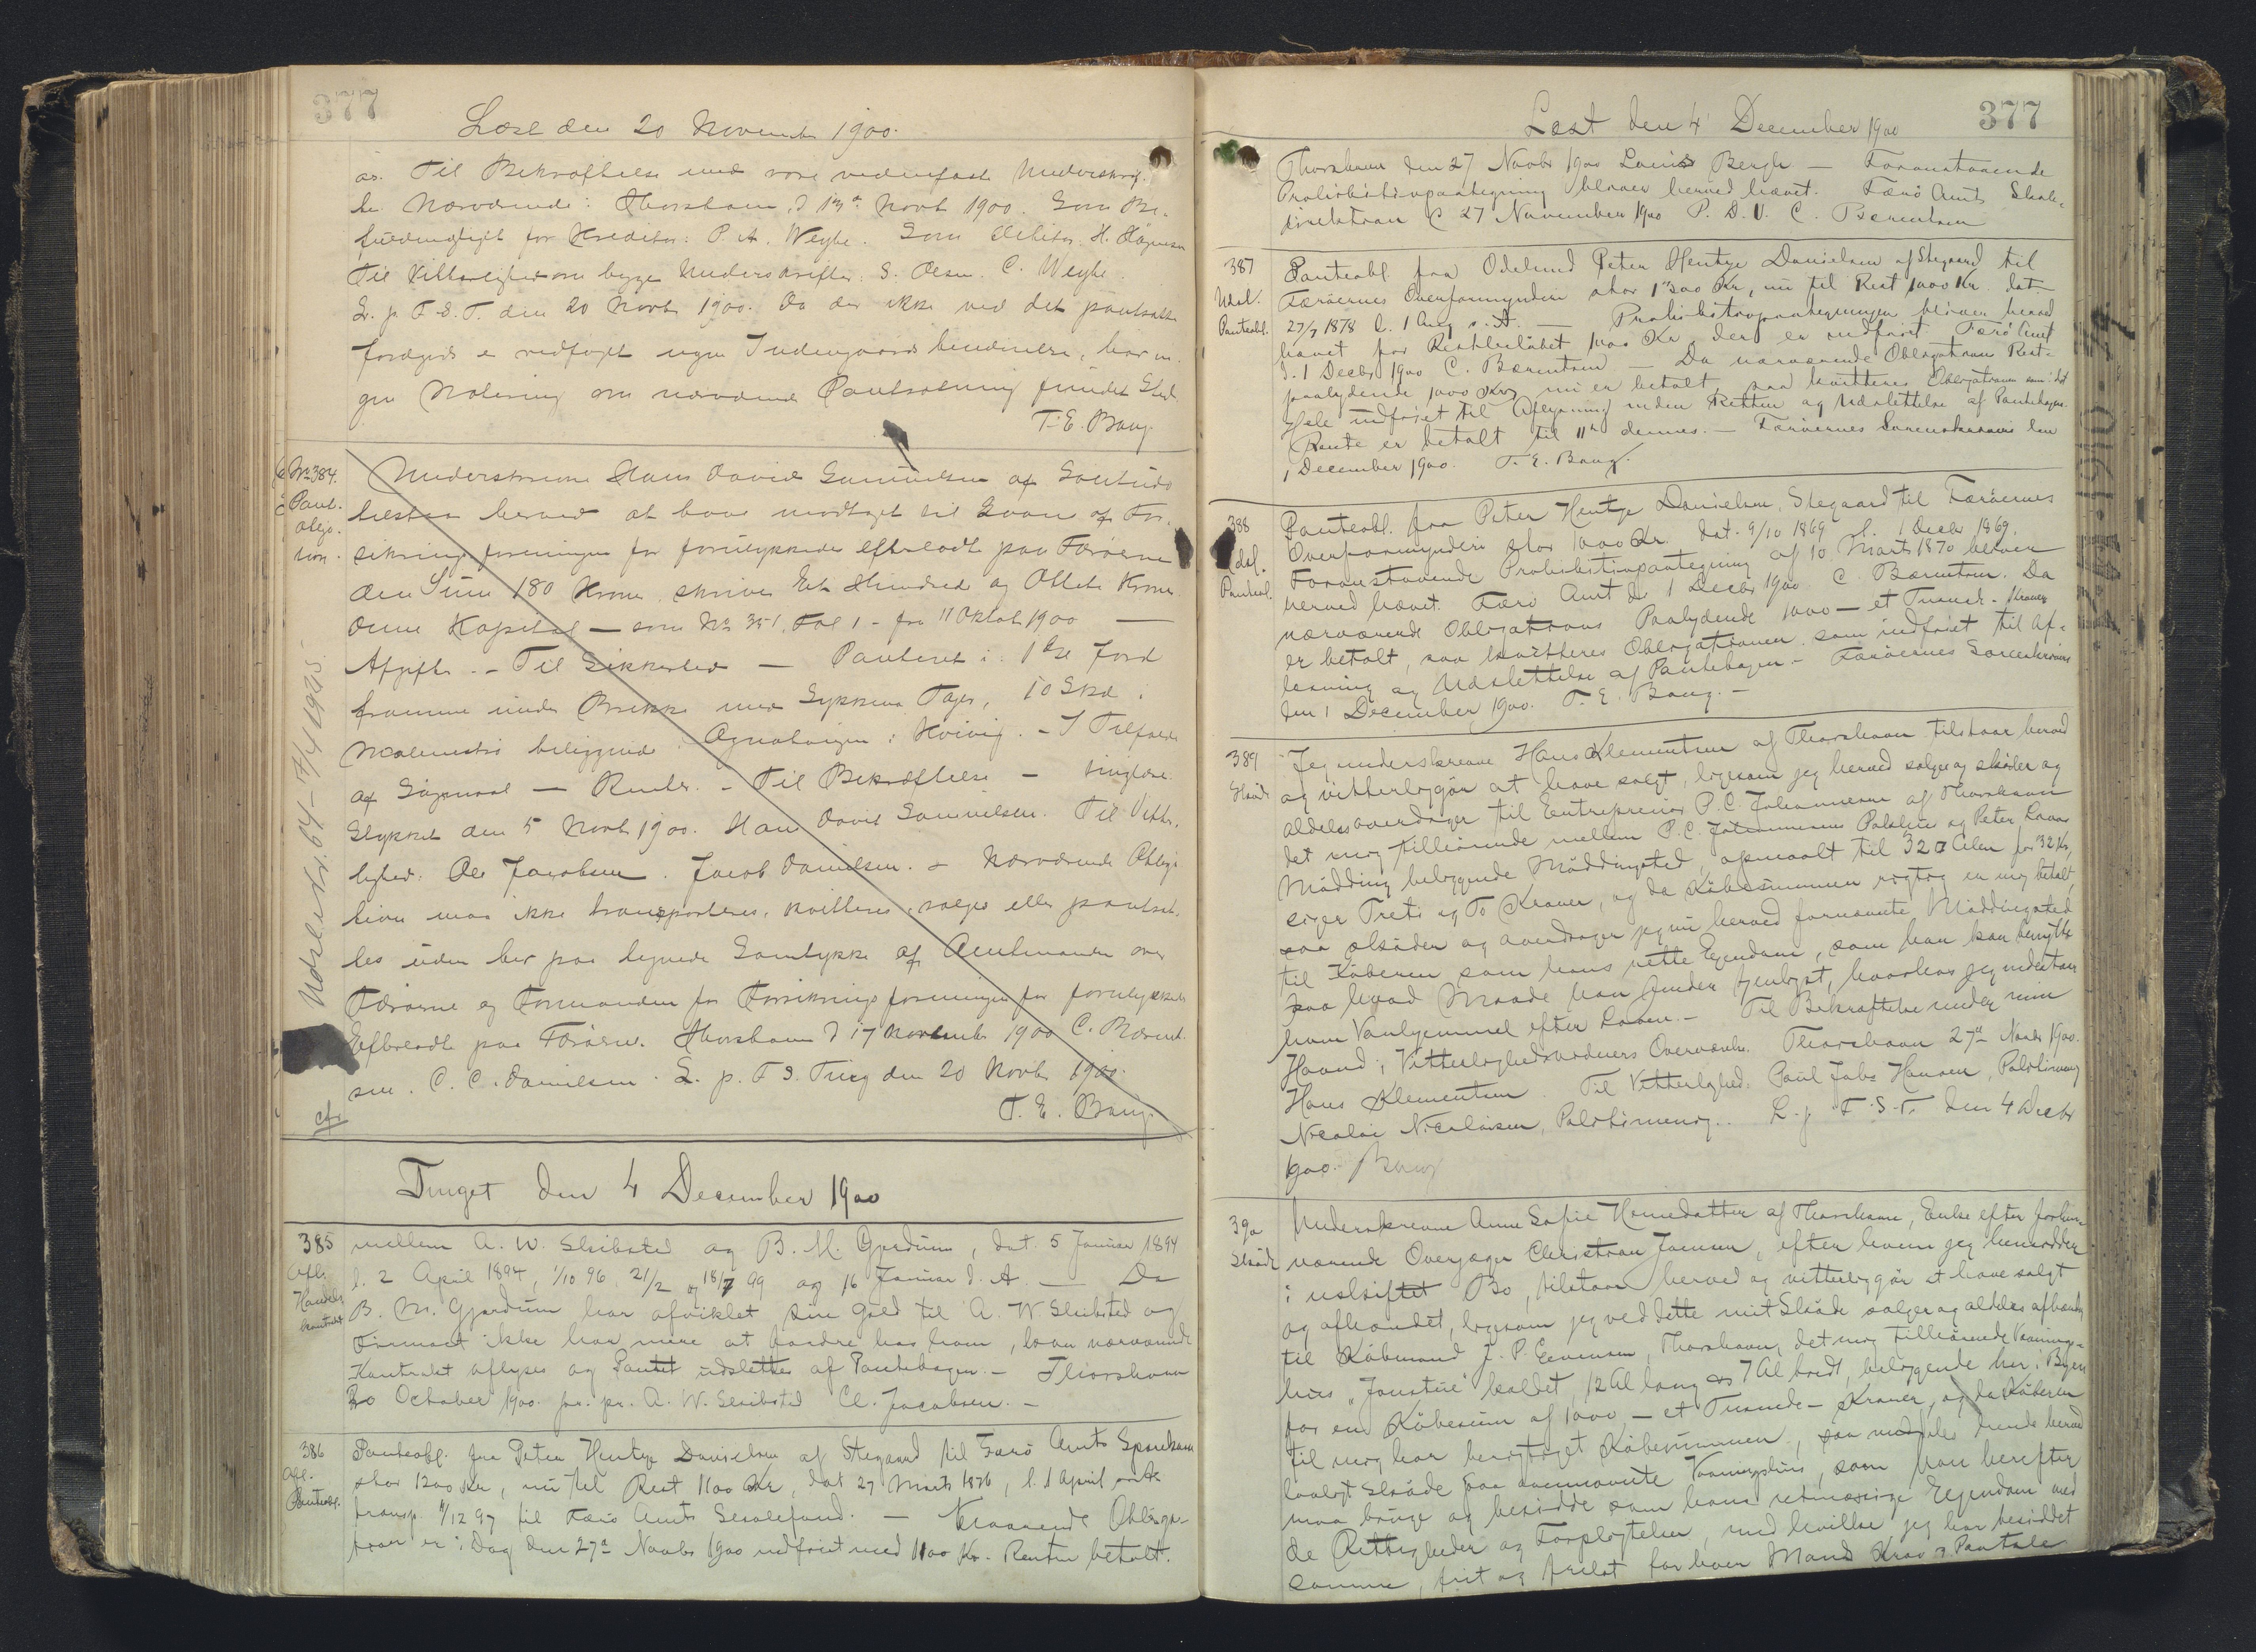 377
Læst den 20 November 1900.
as. Til Bekræftelse med vore vedenfaste Underskrif-
ter Nærværende: Thorshavn, d 13de Novbr 1900. Som Be-
fuldmægtiget for Kreditor: P. A. Weyhe. Som Debitor. H.
Til Vitterlighed om begge Underskrifter. S. Olsen. C. Weyhe
L. p. F. S. T. den 20 Novbr 1900. Da der ikke ved det pantsatte
er vedføjet nogen
gen Notering om nærværende Pantsætning fundet Sted.
T. E. Bang.
No 384.
Pant-
obliga-
tion.
Underskrevne Hans David Samuelsen af
tilstaar herved at have modtaget til Laan af For-
sikringsforeningen for forulykkedes Efterladte paa Færøerne
den Sum 180 Kroner skriver Et Hundrede og Otteti Kroner
denne Kapital — som No 351, Fol 1 - fra 11 Oktob 1900 —
Afgifter. - Til Sikkerhed — Panteret i: 1 Gl Jord
fremme under Brekke med Lykken Tager, 10 Skd i
beliggende i Hvivig. - I Tilfælde
af Søgsmaal — Renter. - Til Bekræftelse — tinglæse
Stykket den 5 Novb 1900. Hans David Samuelsen. Til Vitter-
lighed: Ole Jacobsen. Jacob Danielsen. - Nærværende Obliga-
tion maa ikke transporteres, kvitteres, sælges eller pantsæt-
tes uden her paa tegnede Samtykke af Amtmanden over
Færøerne og Formanden for Forsikringsforeningen for forulykkedes
Efterladte paa Færøerne. Thorshavn d 17 November 1900 C. Bærent-
sen. C. C. Danielsen. L. p. F S. Ting den 20 Novbr 1900.
T. E. Bang.
cfr
Udslettet. 64 - 17/4 1925.
Tinget den 4 December 1900
385
Afl.
Handels
kontrakt
mellem A. W. Skibsted og B. M. Gjerdum, dat. 5 Januar 1894
l. 2 April 1894, 1/10 96, 21/2 og 18/7 99 og 16 Januar d. A. — Da
B. M. Gjerdum har afviklet sin Gæld til A. W Skibsted og
Firmaet ikke har mere at fordre hos ham, bliver nærværende
Kontrakt aflyses og Pantet udslettes af Pantebogen. - Thorshavn
30 October 1900. for. pr. A. W. Skibsted Cl. Jacobsen. -
386
Afl.
Panteobl.
Panteobl. fra Peter Hentze Danielsen af Stegaard til Færø Amts Sparekasse
stor 1200 Kr, nu til Rest 1100 Kr, dat 27 Marts 1876, l. 1 April
transp. 11/12 97 til Færø Amts Skolefond. — Obliga-
tion er i Dag den 27de Novbr 1900 indfriet med 1100 Kr. Renten betalt.
Læst den 4 December 1900
377
Thorshavn den 27 Novbr 1900 Louis Bergh — Foranstaaende
Prohibitivpaategning bliver herved hævet. Færø Amts Skole-
direktion d 27 November 1900 P. D. V. C. Bærentsen
387
Udsl.
Panteobl.
Panteobl. fra Odelsmd Peter Hentze Danielsen af Stegaard til
Færøernes Overformynderi stor 1300 Kr, nu til Rest 1000 Kr. dat
27/7 1878 l. 1 Aug s. A. — Prohibitivpaategningen bliver herved
hævet for Restbeløbet 1000 Kr, der er indfriet. Færø Amt
d. 1 Decbr 1900 C. Bærentsen — Da nærværende Obligations Rest-
paalydende 1000 Kr nu er betalt, saa kvitteres Obligationen som i det
Hele indfriet til Aflysning inden Retten og Udslettelse af Pantebogen.
Rente er betalt til 11te dennes. — Færøernes Sorenskriveri den
1 December 1900. T. E. Bang.
388
Udsl.
Panteobl.
Panteobl. fra Peter Hentze Danielsen, Stegaard til Færøernes
Overformynderi stor 1000 Kr. dat. 9/10 1869 l. 1 Decbr 1869.
Foranstaaende Prohibitivpaategning af 10 Marts 1870 bliver
herved hævet. Færø Amt d. 1 Decbr 1900 C. Bærentsen. Da
nærværende Obligations Paalydende 1000 — et Tusind - Kroner
er betalt, saa kvitteres Obligationen som indfriet til Af-
læsning og Udslettelse af Pantebogen - Færøernes Sorenskriveri
den 1 December 1900. T. E. Bang. -
389
Skøde
Jeg underskrevne Hans Klementsen af Thorshavn tilstaar herved
og vitterliggør at have solgt, ligesom jeg herved sælger og skøder og
aldeles overdrager til Entreprenør P. C. Johannesen af Thorshavn
det mig tilhørende mellem P. C. Johannesens Pakhus og Peter
Mødding beliggende Møddingsted, opmaalt til 32 □ Alen for 32 Kr,
siger Treti og To Kroner, og da Købesummen rigtig er mig betalt,
saa skøder og overdrager jeg nu herved fornævnte Møddingsted
til Køberen som hans rette Ejendom, som han kan benytte
paa hvad Maade han finder tjenligst, hvorhos jeg indestaar
ham Vanhjemmel efter Loven. - Til Bekræftelse under min
Haand i Vitterlighedsvidners Overværelse. Thorshavn 27de Novbr 1900.
Hans Klementsen. Til Vitterlighed. Poul Jabs Hansen, Palitimand
Nicolai Nicolaisen, Palitimand. L. p. F. S. T. den 4 Decbr
1900. Bang
390
Skøde
Underskrevne Anne Sofie Hansdatter af Thorshavn, Enke efter forhen-
værende Overjæger Christian Joensen, efter hvem jeg hensidder
i uskiftet Bo, tilstaar herved og vitterliggør at have solgt
og afhændet, ligesom jeg ved dette mit Skøde sælger og aldeles afhænder
til Købmand J. P. Evensen, Thorshavn, det mig tilhørende Vaanings-
hus „Jonstue“ kaldet, 12 Al lang og 7 Al bredt, beliggende her i Byen
for en Købesum af 1000 — et Tusinde - Kroner, og da Køberen
til mig har berigtiget Købesummen, saa meddeles denne herved
lovligt Skøde paa ovennævnte Vaaningshus, som han herefter
maa bruge og besidde som hans retmæssige Ejendom med
de Rettigheder og Forpligtelser, med hvilke jeg har besiddet
samme, frit og frelst for hver Mands Krav og Paatale